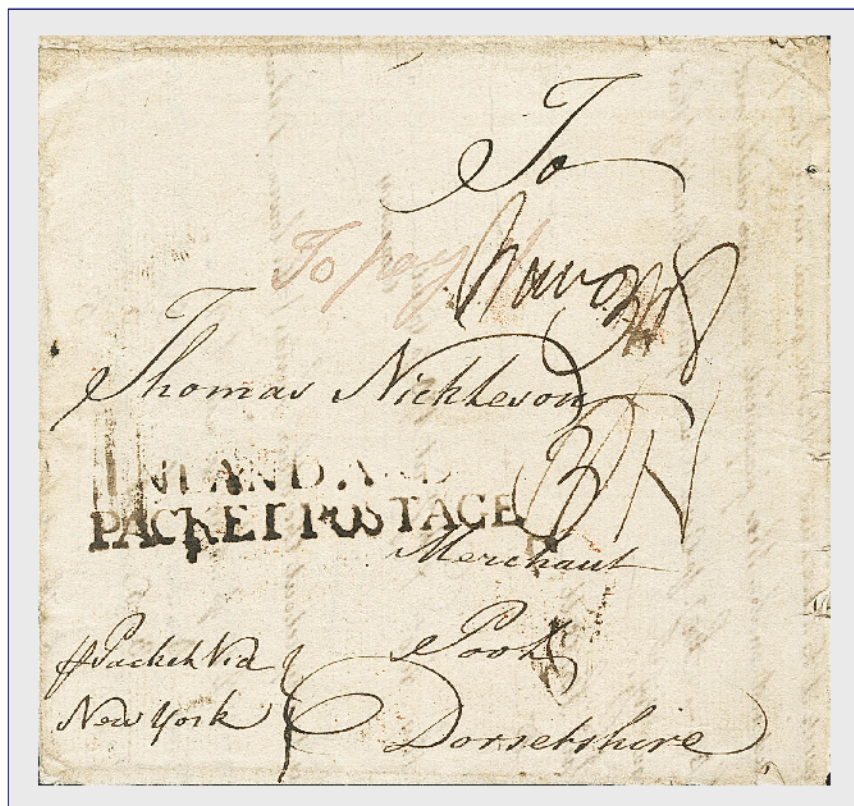 To
To pay
Thomas Nickleson
INLAND AND
PACKET POSTAGE
Merchant
Pool
Dorsetshire
Packet Via
New York